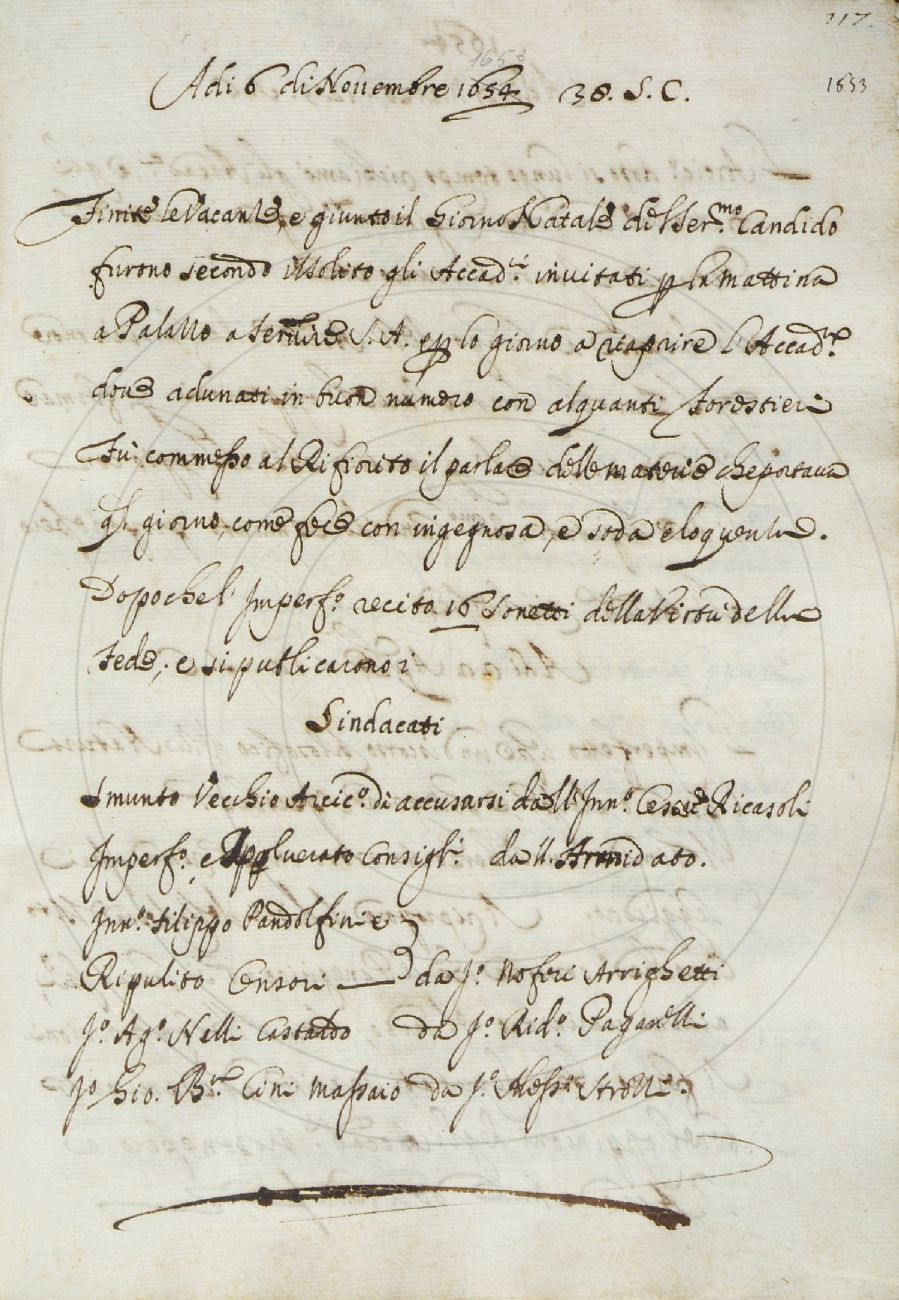 117.
1653
Adi 6 di Novembre 1654 38. S. C.
1653
Finite le Vacanze, e giunto il Giorno Natale del Ser.mo Candido
furono secondo il solito gli Accad.ci invitati p la mattina
a Palazzo a servire S. A. e p lo giorno a riaprire l'Accad.
dove adunati in buon numero con alquanti forestieri
Fù commesso al Rifiorito il parlare delle materie che portava
ql giorno, come fece con ingegnosa, e soda eloquenza.
Dopo che l' Imperf.o recitò 16 Sonetti della Virtù della
Fede, e si publicarono i
Sindacati
Smunto Vecchio Arcic.o di accusarsi dall' Inn.o Cesare Ricasoli
Imperf.o, e Consigl.i dall'
Inn.o Filippo Pandolfini e
Ripulito Censori da J.o Noferi Arrighetti
J.o Ag.o Nelli Castaldo da J.o Rid.o Paganelli
J.o Gio. B. Cini Massaio da J.o Aless.o